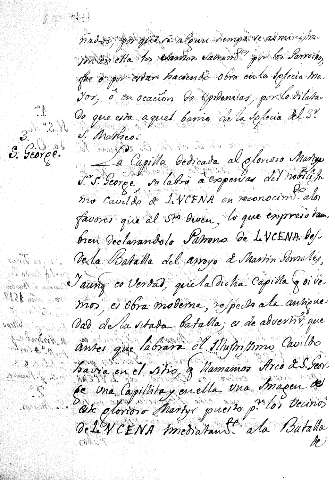 nadas por que si algun tiempo se administra
ron en ella los Santos Sacram.tos por los Parrocos,
fue ó por estar haciendo obra en la Iglesia ma
yor, ó en ocasion de Epidemias, por lo dilata
do que está aquel barrio de la Iglesia del S.r
S. Matheo.
3.
S. George.
La Capilla dedicada al glorioso Martyr
S.r S. George, se labró á expensas del nobilissi
mo Cavildo de LVCENA en reconocim.to a los
favores que al S.to deven, lo que empreso tam
bien declarandolo Patrono de LVCENA des
de la Batalla del arroyo de Martin Gonzales,
Y aunq. es verdad, que la dicha Capilla q. oi ve
mos, es obra moderna, respecto a la antigue
dad de la citada batalla, es de advertir, que
antes que labrara el Illustrissimo Cavildo
havia en el sitio, q. llamamos Arco de S. Geor
ge una Capillita, y en ella una Imagen de
este glorioso Martyr puesto p.r los Vecinos
de LVCENA immediatam.te a la Batalla